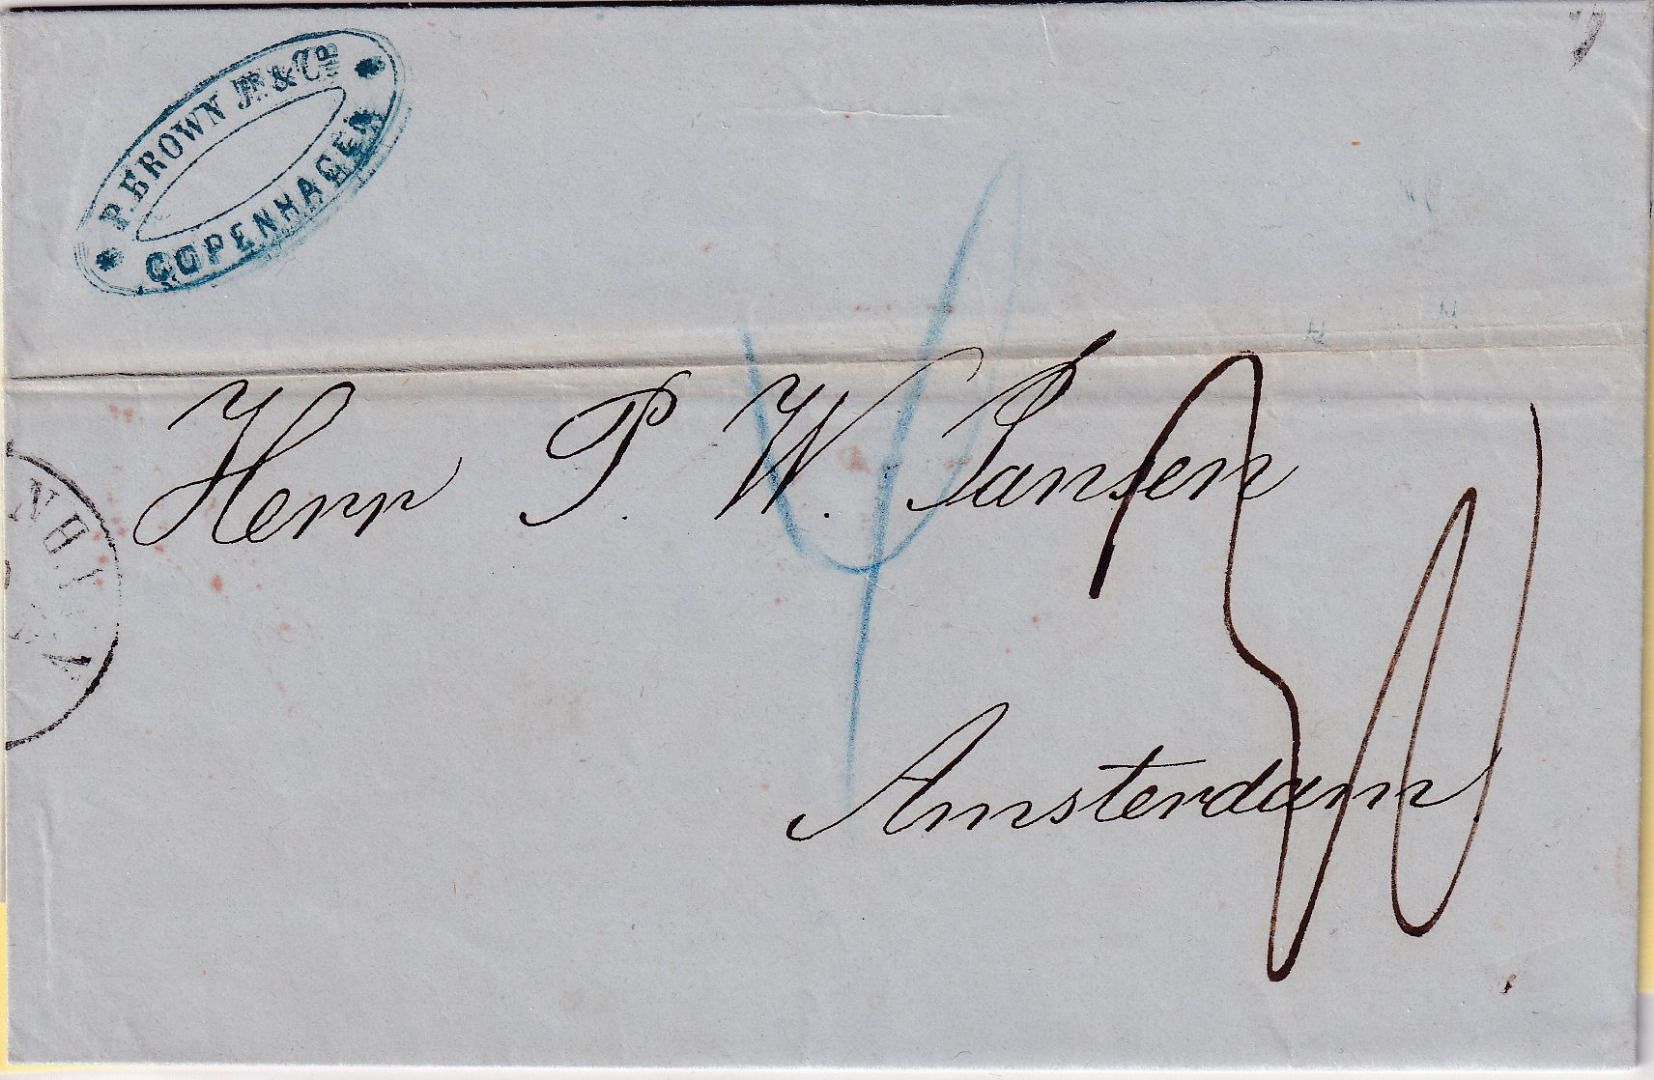 P. BROWN JR & Co
COPENHAGEN
Herr P. W. Jansen
Amsterdam
4